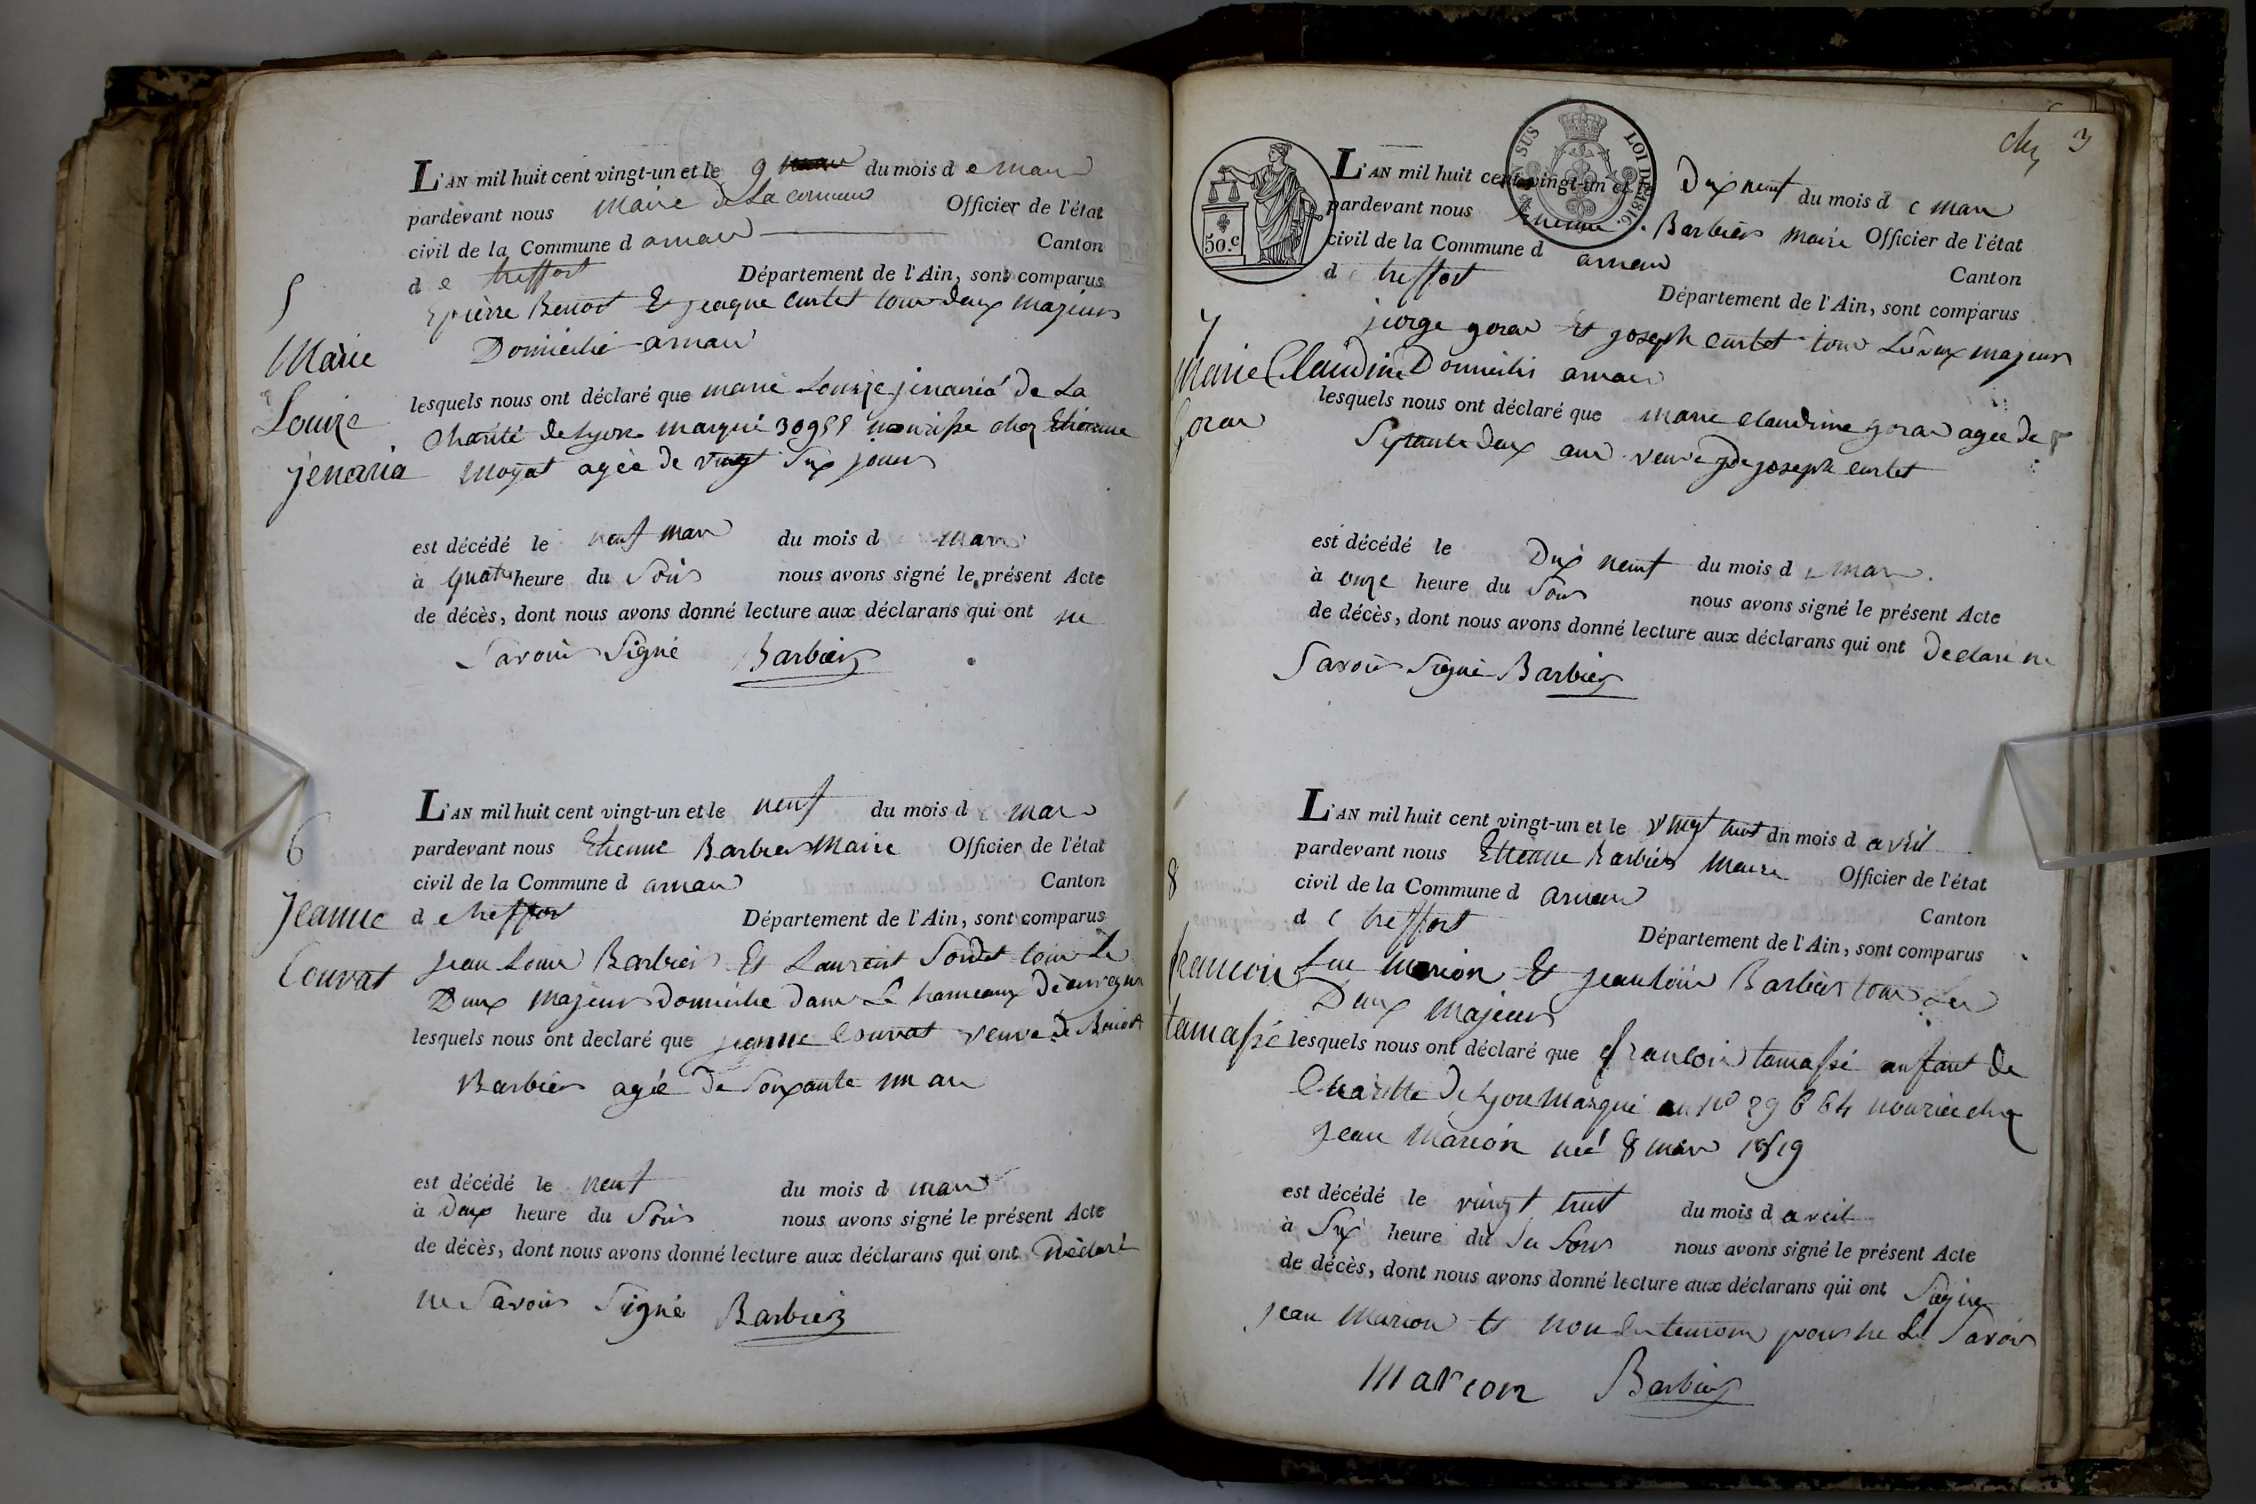 L'AN mil huit cent vingt-un et le 9 du mois d e mars
pardevant nous Maire de La commune Officier de l'état
civil de la Commune d arnan Canton
d e treffort Département de l'Ain, sont comparus
pierre Benoit Et jeaque Curtet tous deux majeurs
Domicilié arnan
5
Marie
Louize
jenaria
lesquels nous ont déclaré que marie Louize jenaria de La
Charité de Lyon marqué nourisse chez Etienne
Moyat agée de vingt Six jours
est décédé le neuf mars du mois d mars
à quatre heure du Soir nous avons signé le présent Acte
de décès, dont nous avons donné lecture aux déclarans qui ont ne
Savoir Signé Barbier
6
Jeanne
Couvat
L'AN mil huit cent vingt-un et le neuf du mois d mars
pardevant nous Etienne Barbier Maire Officier de l'état
civil de la Commune d arnan Canton
d e treffort Département de l'Ain, sont comparus
Jean Louis Barbier Et Laurent Sordet tous Le
Deux majeurs domicilie dans Le hameaux
lesquels nous ont declaré que jeanne Couvat veuve de Benoit
Barbier agée de Soixante un an
est décédé le neuf du mois d mars
à Deux heure du Soir nous avons signé le présent Acte
de décès, dont nous avons donné lecture aux déclarans qui ont Déclaré
ne Savoir Signé Barbier
3
50.c
LOI DE 1816.
L'AN mil huit cent vingt-un et le Dix neuf du mois d e mars
pardevant nous Etienne Barbier maire Officier de l'état
civil de la Commune d arnan Canton
d e treffort Département de l'Ain, sont comparus
7
Marie Claudine
Goran
jorge goran Et joseph Curtet tous Les deux majeurs
Domicilis arnan
lesquels nous ont déclaré que marie Claudine goran agée de
Septante deux ans veuve de joseph Curtet
est décédé le Dix neuf du mois d e mars
à onze heure du Soir nous avons signé le présent Acte
de décès, dont nous avons donné lecture aux déclarans qui ont Declaré ne
Savoir Signé Barbier
8
francois
tamassé
L'AN mil huit cent vingt-un et le vingt huit du mois d avril
pardevant nous Etienne Barbier Maire Officier de l'état
civil de la Commune d arnan Canton
d e treffort Département de l'Ain, sont comparus
Luc Marion Et jean Louis Barbier tous Les
Deux Majeurs
lesquels nous ont déclaré que francois tamassé anfant de
Charitte de Lyon Marqué au No 29664 nourie chez
Jean Marion né 8 mars 1819
est décédé le vingt huit du mois d avril
à Six heure du du Soir nous avons signé le présent Acte
de décès, dont nous avons donné lecture aux déclarans qui ont Signé
Jean Marion et non les temoins pour ne Le Savoir
Marion Barbier